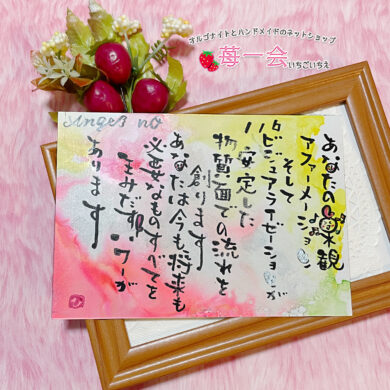 オルゴナイトとハンドメイドのネットショップ
苺一会
いちごいちえ
Angel no
116
あなたの楽観
アファメーション
そして
ビジュアライゼーションが
安定した
物質面での流れを
創ります
あなたは今も、将来も
必要なものすべてを
生みだすパワーが
あります